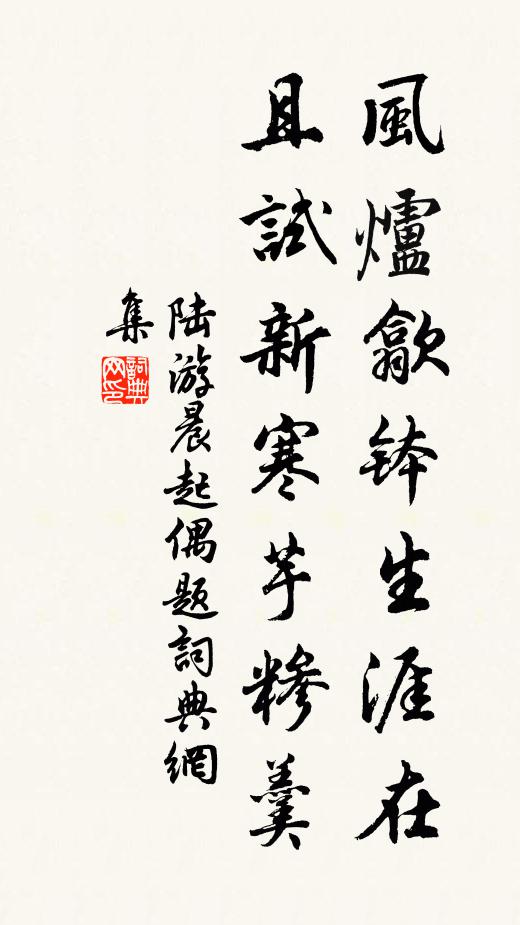 風爐歙缽生涯在
且試新寒芋糝羹
陸游晨起偶题詞典網
集
詞典网印